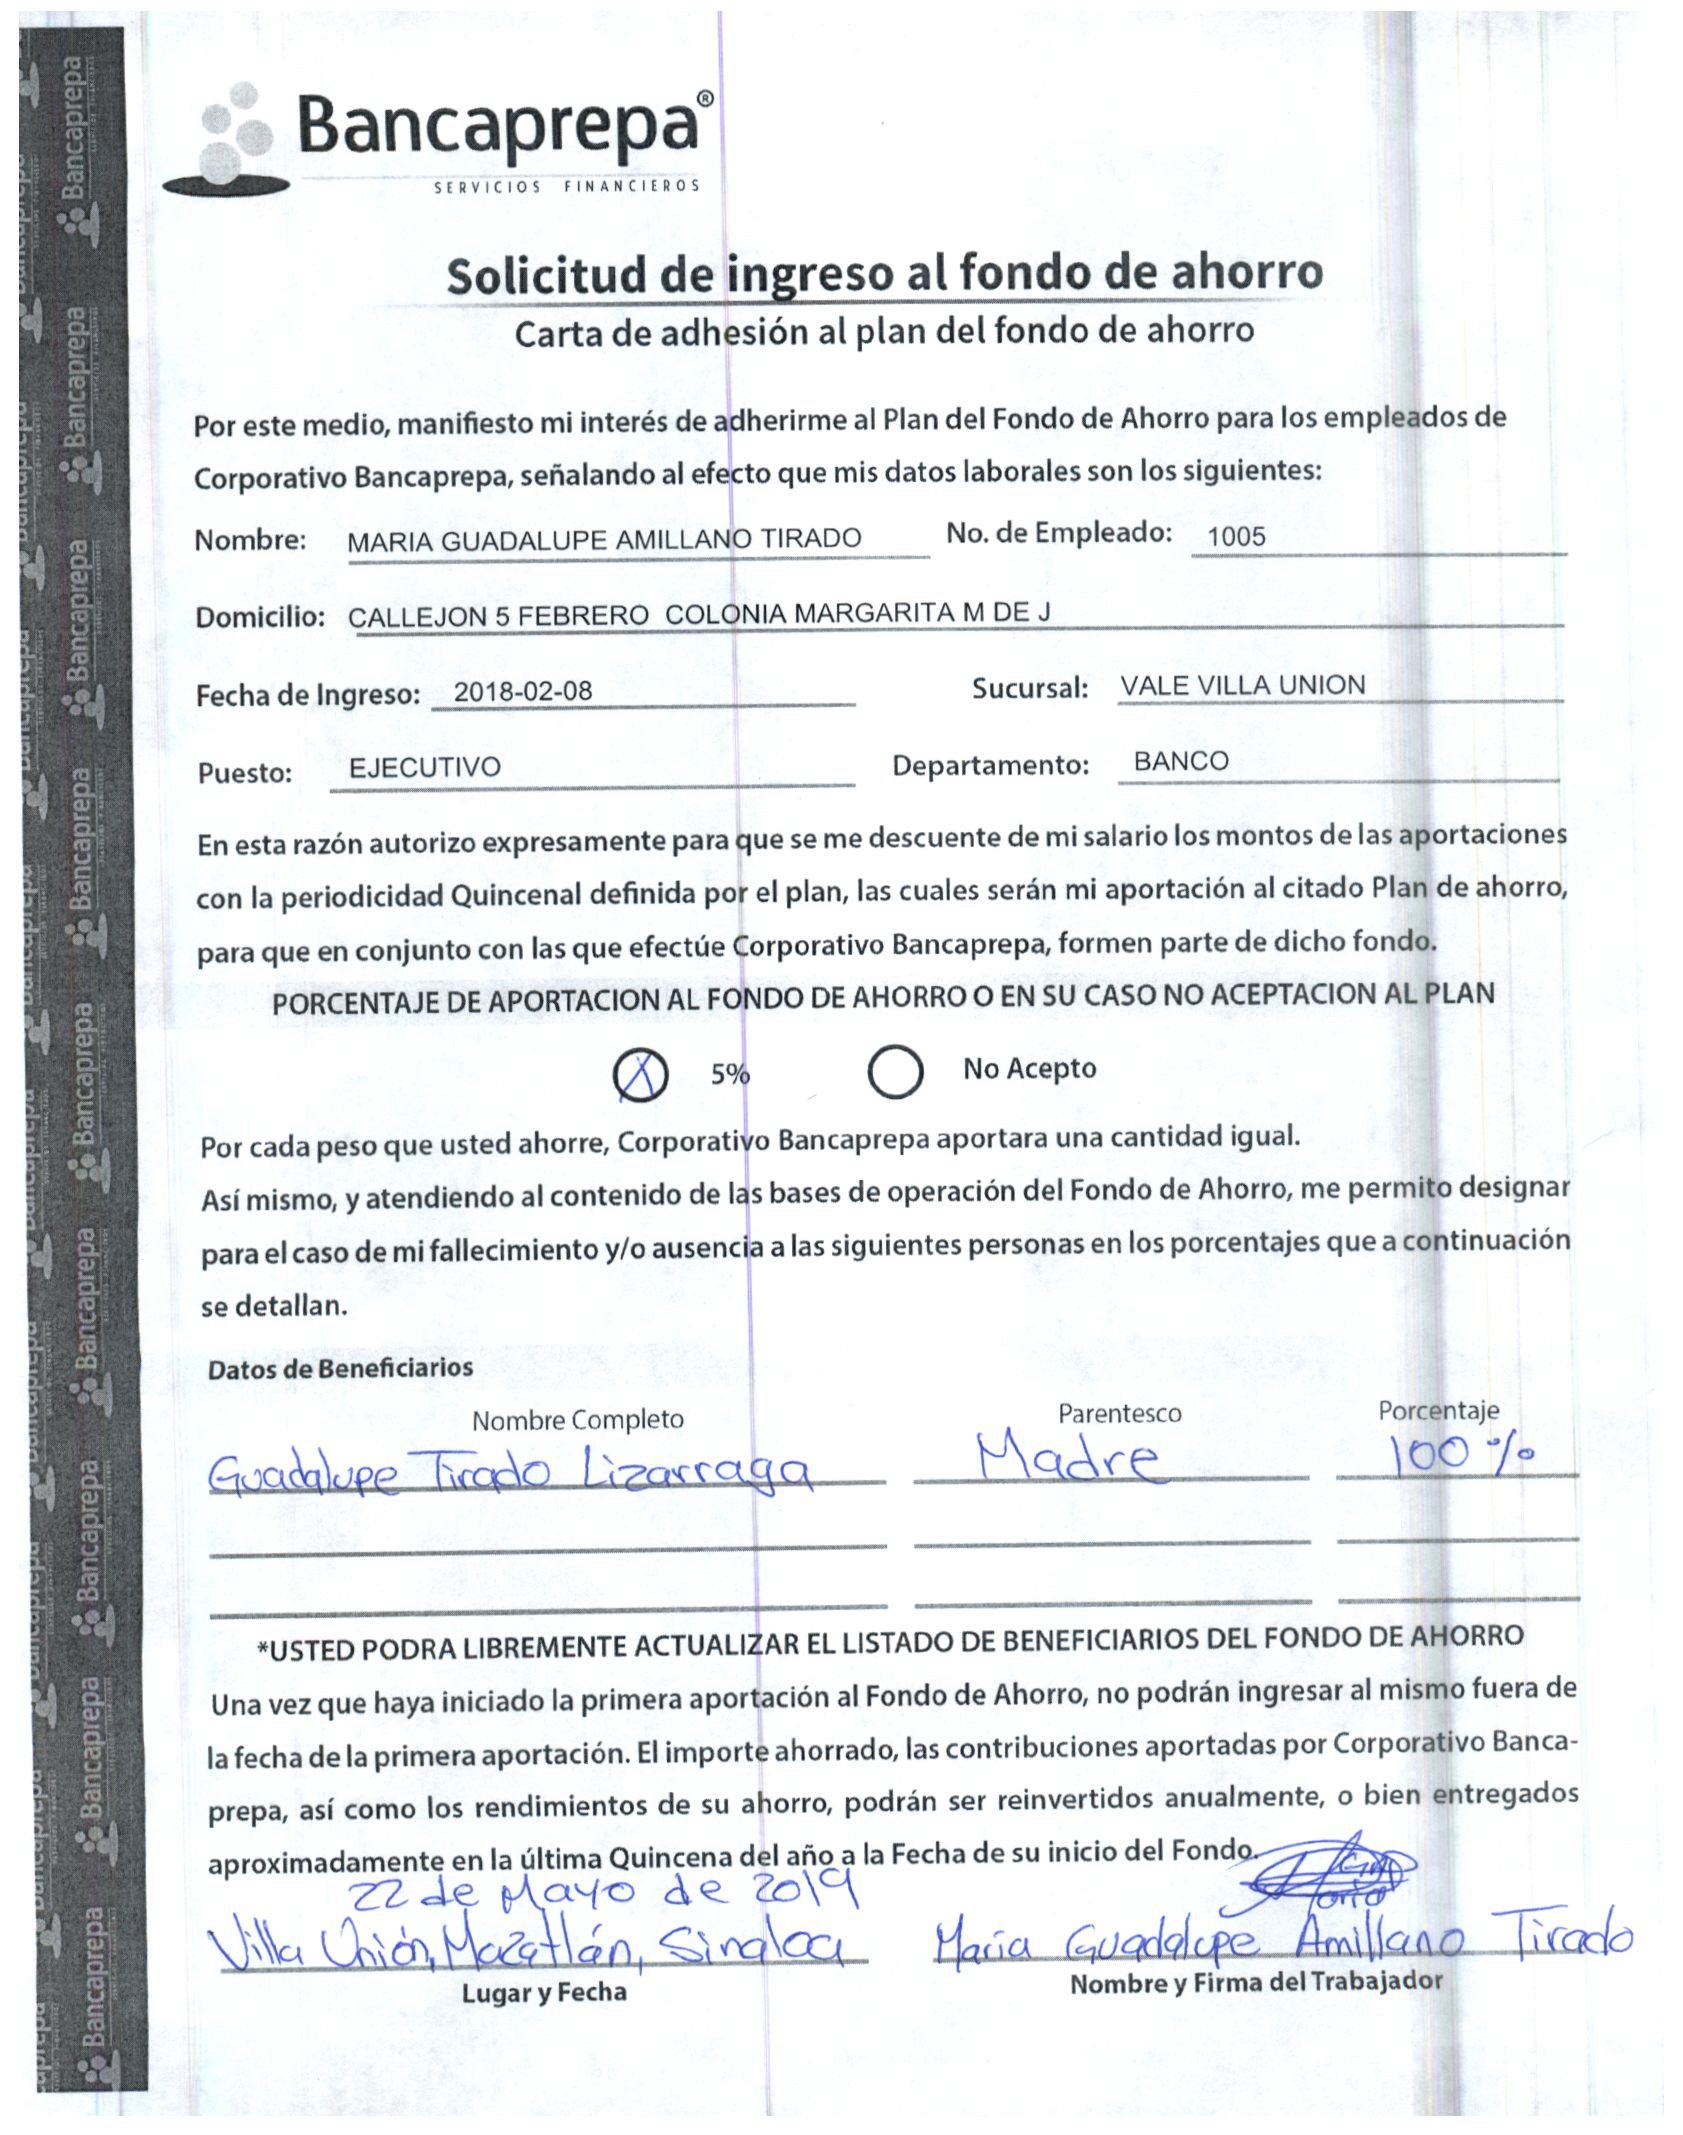 Bancaprepa®
SERVICIOS FINANCIEROS
Solicitud de ingreso al fondo de ahorro
Carta de adhesión al plan del fondo de ahorro
Por este medio, manifiesto mi interés de adherirme al Plan del Fondo de Ahorro para los empleados de
Corporativo Bancaprepa, señalando al efecto que mis datos laborales son los siguientes:
Nombre: MARIA GUADALUPE AMILLANO TIRADO No. de Empleado: 1005
Domicilio: CALLEJON 5 FEBRERO COLONIA MARGARITA M DE J
Fecha de Ingreso: 2018-02-08 Sucursal: VALE VILLA UNION
Puesto: EJECUTIVO Departamento: BANCO
En esta razón autorizo expresamente para que se me descuente de mi salario los montos de las aportaciones
con la periodicidad Quincenal definida por el plan, las cuales serán mi aportación al citado Plan de ahorro,
para que en conjunto con las que efectúe Corporativo Bancaprepa, formen parte de dicho fondo.
PORCENTAJE DE APORTACION AL FONDO DE AHORRO O EN SU CASO NO ACEPTACION AL PLAN
X 5% No Acepto
Por cada peso que usted ahorre, Corporativo Bancaprepa aportara una cantidad igual.
Así mismo, y atendiendo al contenido de las bases de operación del Fondo de Ahorro, me permito designar
para el caso de mi fallecimiento y/o ausencia a las siguientes personas en los porcentajes que a continuación
se detallan.
Datos de Beneficiarios
Nombre Completo Parentesco Porcentaje
Guadalupe Tirado Lizarraga Madre 100 %
*USTED PODRA LIBREMENTE ACTUALIZAR EL LISTADO DE BENEFICIARIOS DEL FONDO DE AHORRO
Una vez que haya iniciado la primera aportación al Fondo de Ahorro, no podrán ingresar al mismo fuera de
la fecha de la primera aportación. El importe ahorrado, las contribuciones aportadas por Corporativo Banca-
prepa, así como los rendimientos de su ahorro, podrán ser reinvertidos anualmente, o bien entregados
aproximadamente en la última Quincena del año a la Fecha de su inicio del Fondo.
22 de Mayo de 2019
Villa Unión, Mazatlán, Sinaloa María Guadalupe Amillano Tirado
Lugar y Fecha Nombre y Firma del Trabajador